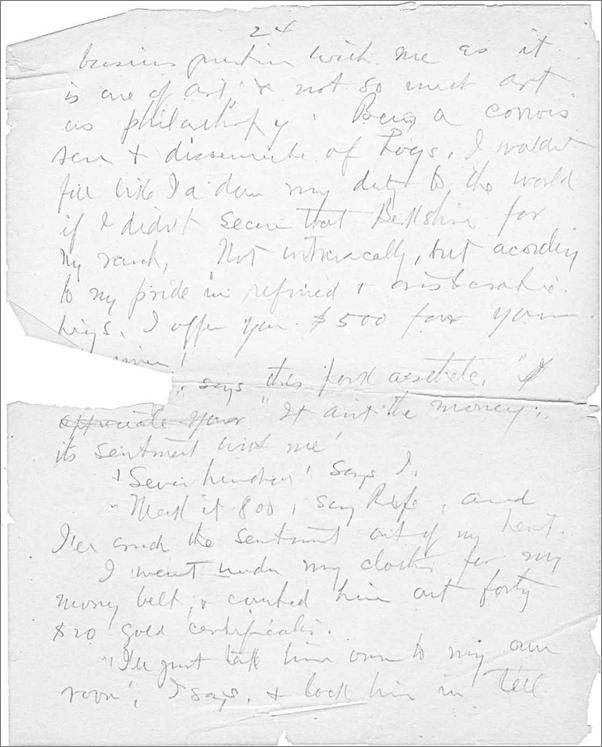 24
business question with me as it
is one of art, & not so much art
as philanthropy. Being a connois
seur & disseminator of hogs, I wouldn't
feel like I'd a done my duty to the world
if I didn't secure that Berkshire for
my ranch, Not intrinsically, but according
to my pride in refined & aristocratic
hogs, I offer you $500 for your
says this pork aesthete, "I
appreciate your "It ain't the money;
its sentiment with me'
Seven hundred' says I.
"Make it 800, says Rufe, and
I'll crush the sentiment out of my heart.
I went under my clothes for my
money belt, & counted him out forty
$20 gold certificates.
"I'll just take him over to my own
room", I says, & lock him in till